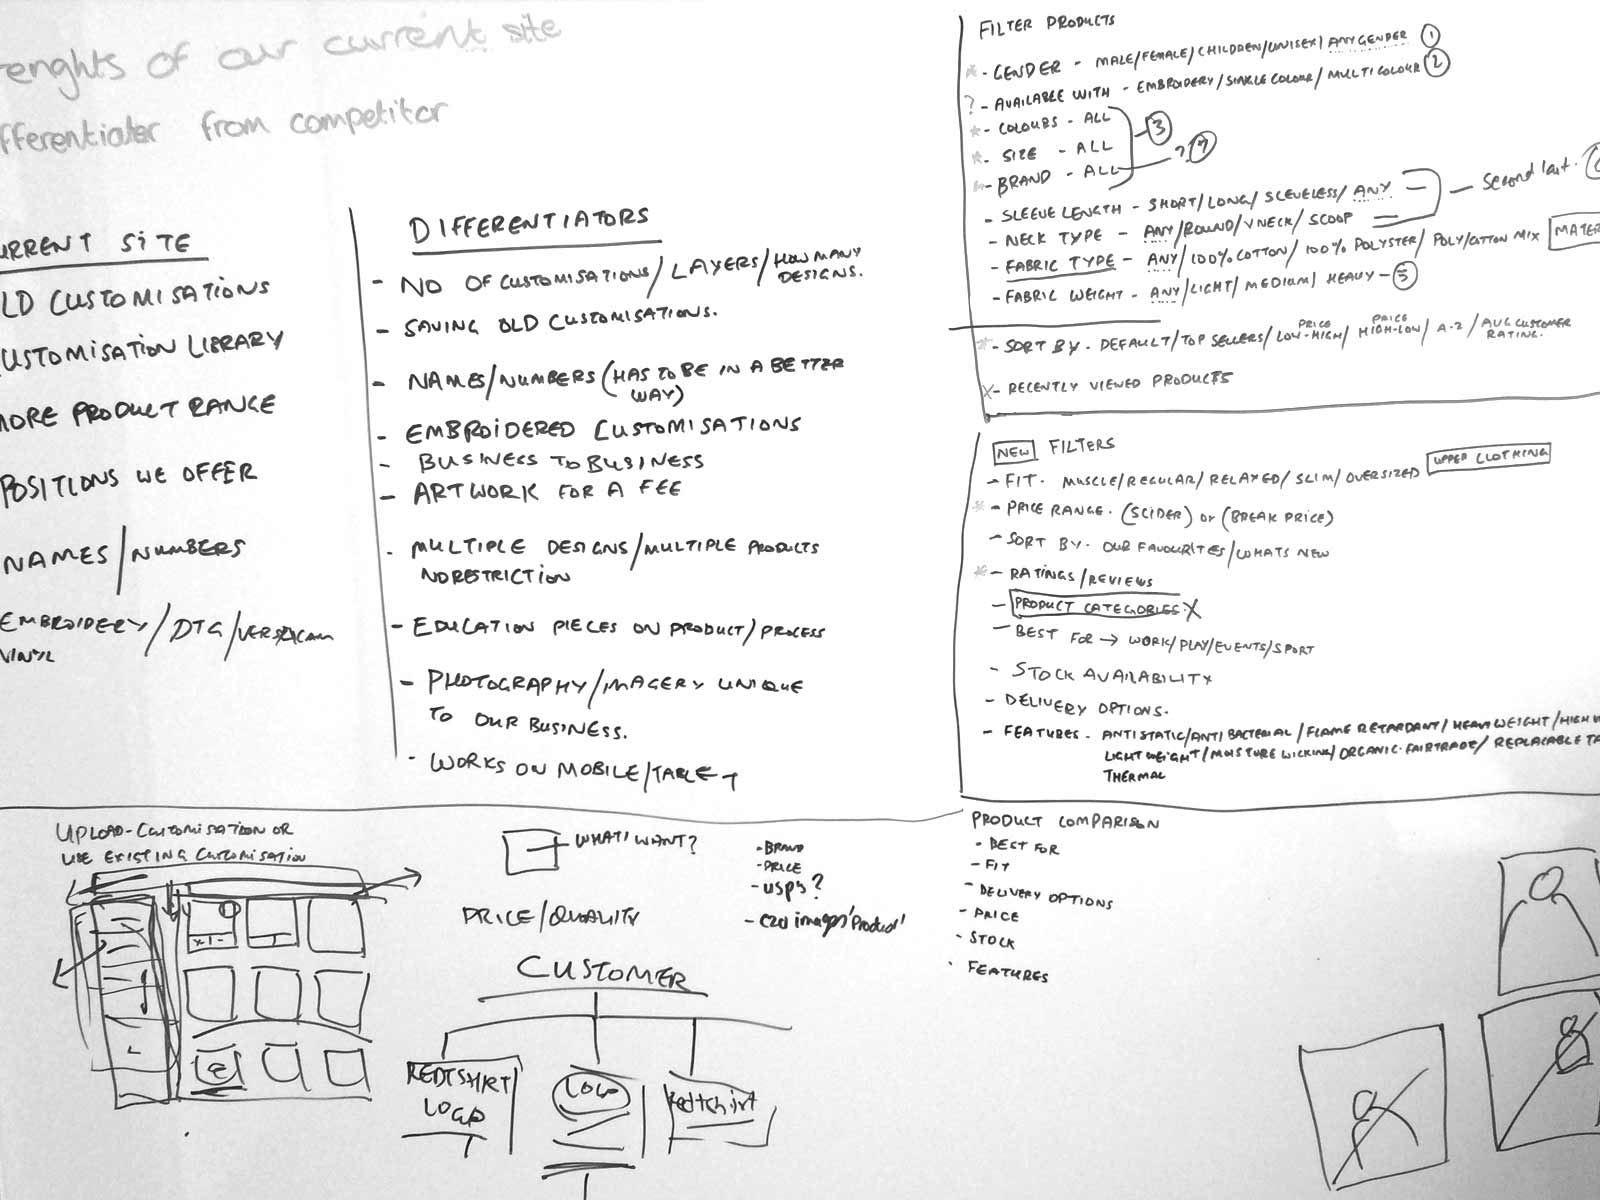 renghts of our current site
fferentiater from competitor
URRENT SITE
LD CUSTOMISATIONS
USTOMISATION LIBRARY
MORE PRODUCT RANGE
POSITIONS WE OFFER
NAMES/NUMBERS
EMBROIDERY/DTG/VERSACAM
VINYL
DIFFERENTIATORS
- NO OF CUSTOMISATIONS/LAYERS/HOW MANY
DESIGNS.
- SAVING OLD CUSTOMISATIONS.
- NAMES/NUMBERS (HAS TO BE IN A BETTER
WAY)
- EMBROIDERED CUSTOMISATIONS
- BUSINESS TO BUSINESS
- ARTWORK FOR A FEE
- MULTIPLE DESIGNS/MULTIPLE PRODUCTS
NO RESTRICTION
- EDUCATION PIECES ON PRODUCT/PROCESS
- PHOTOGRAPHY/IMAGERY UNIQUE
TO OUR BUSINESS.
- WORKS ON MOBILE/TABLET
FILTER PRODUCTS
* - GENDER - MALE/FEMALE/CHILDREN/UNISEX/ANY GENDER 1
? - AVAILABLE WITH - EMBROIDERY/SINGLE COLOUR/MULTI COLOUR 2
* - COLOURS - ALL
* - SIZE - ALL 3
- BRAND - ALL ?
- SLEEVE LENGTH - SHORT/LONG/SLEVELESS/ANY - Second last.
- NECK TYPE - ANY/ROUND/VNECK/SCOOP
- FABRIC TYPE - ANY/100% COTTON/100% POLYSTER/POLY/COTTON MIX MATER
- FABRIC WEIGHT - ANY/LIGHT/MEDIUM/HEAVY -
* - SORT BY. DEFAULT/TOP SELLERS/PRICE LOW-HIGH/PRICE HIGH-LOW/A-Z/AVG CUSTOMER
RATING.
X - RECENTLY VIEWED PRODUCTS
NEW FILTERS
- FIT. MUSCLE/REGULAR/RELAXED/SLIM/OVERSIZED UPPER CLOTHING
* - PRICE RANGE. (SCIDER) or (BREAK PRICE)
- SORT BY. OUR FAVOURITES/WHATS NEW
* - RATINGS/REVIEWS
- PRODUCT CATEGORIES X
- BEST FOR → WORK/PLAY/EVENTS/SPORT
- STOCK AVAILABILITY
- DELIVERY OPTIONS.
- FEATURES. ANTISTATIC/ANTI BACTERIAL/FLAME RETARDANT/HEAVIWEIGHT/HIGH
LIGHT WEIGHT/MOISTURE WICKING/ORGANIC.FAIRTRADE/REPLACABLE TA
THERMAL
UPLOAD-CUSTOMISATION OR
USE EXISTING CUSTOMISATION
WHAT I WANT?
PRICE/QUALITY
- BRAND
- PRICE
- USPS?
- images 'Product'
CUSTOMER
REDTSHIRT
LOGO
LOGO
Redtshirt
PRODUCT COMPARISON
- BEST FOR
- FIT
- DELIVERY OPTIONS
- PRICE
- STOCK
- FEATURES